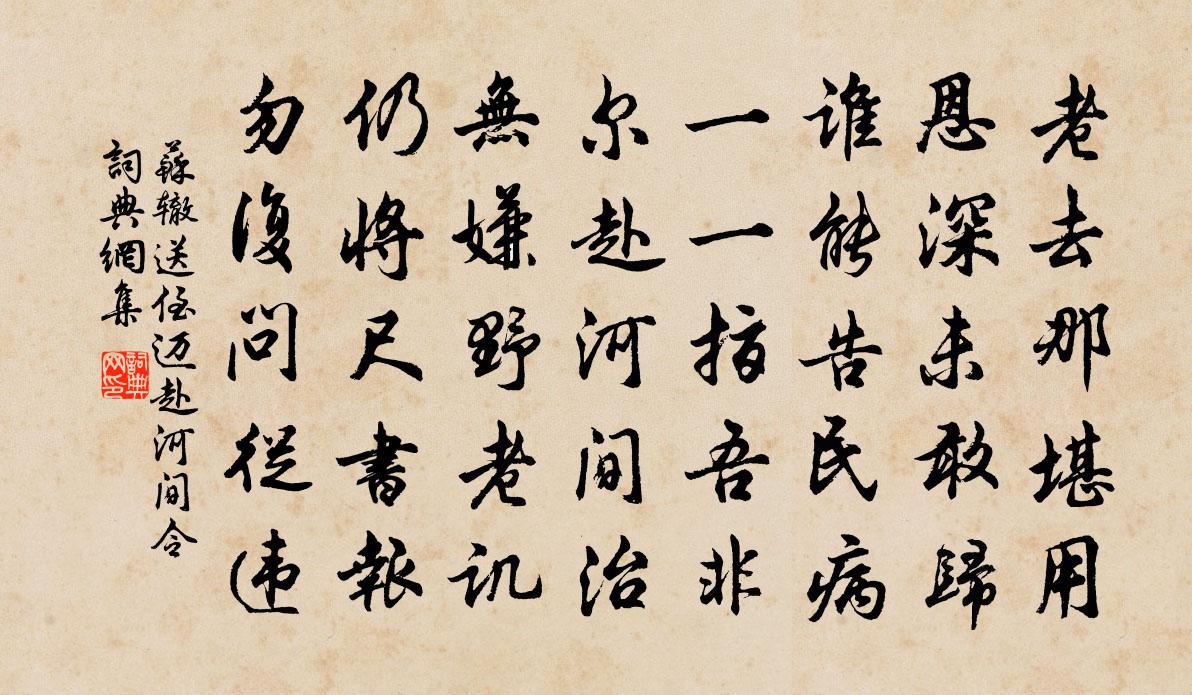 老去那堪用
恩深未敢歸
谁能告民病
一一指吾非
尔赴河间治
無嫌野老讥
仍將尺書報
勿復问從违
蘇辙送侄迈赴河间令
詞典網集
詞典网印